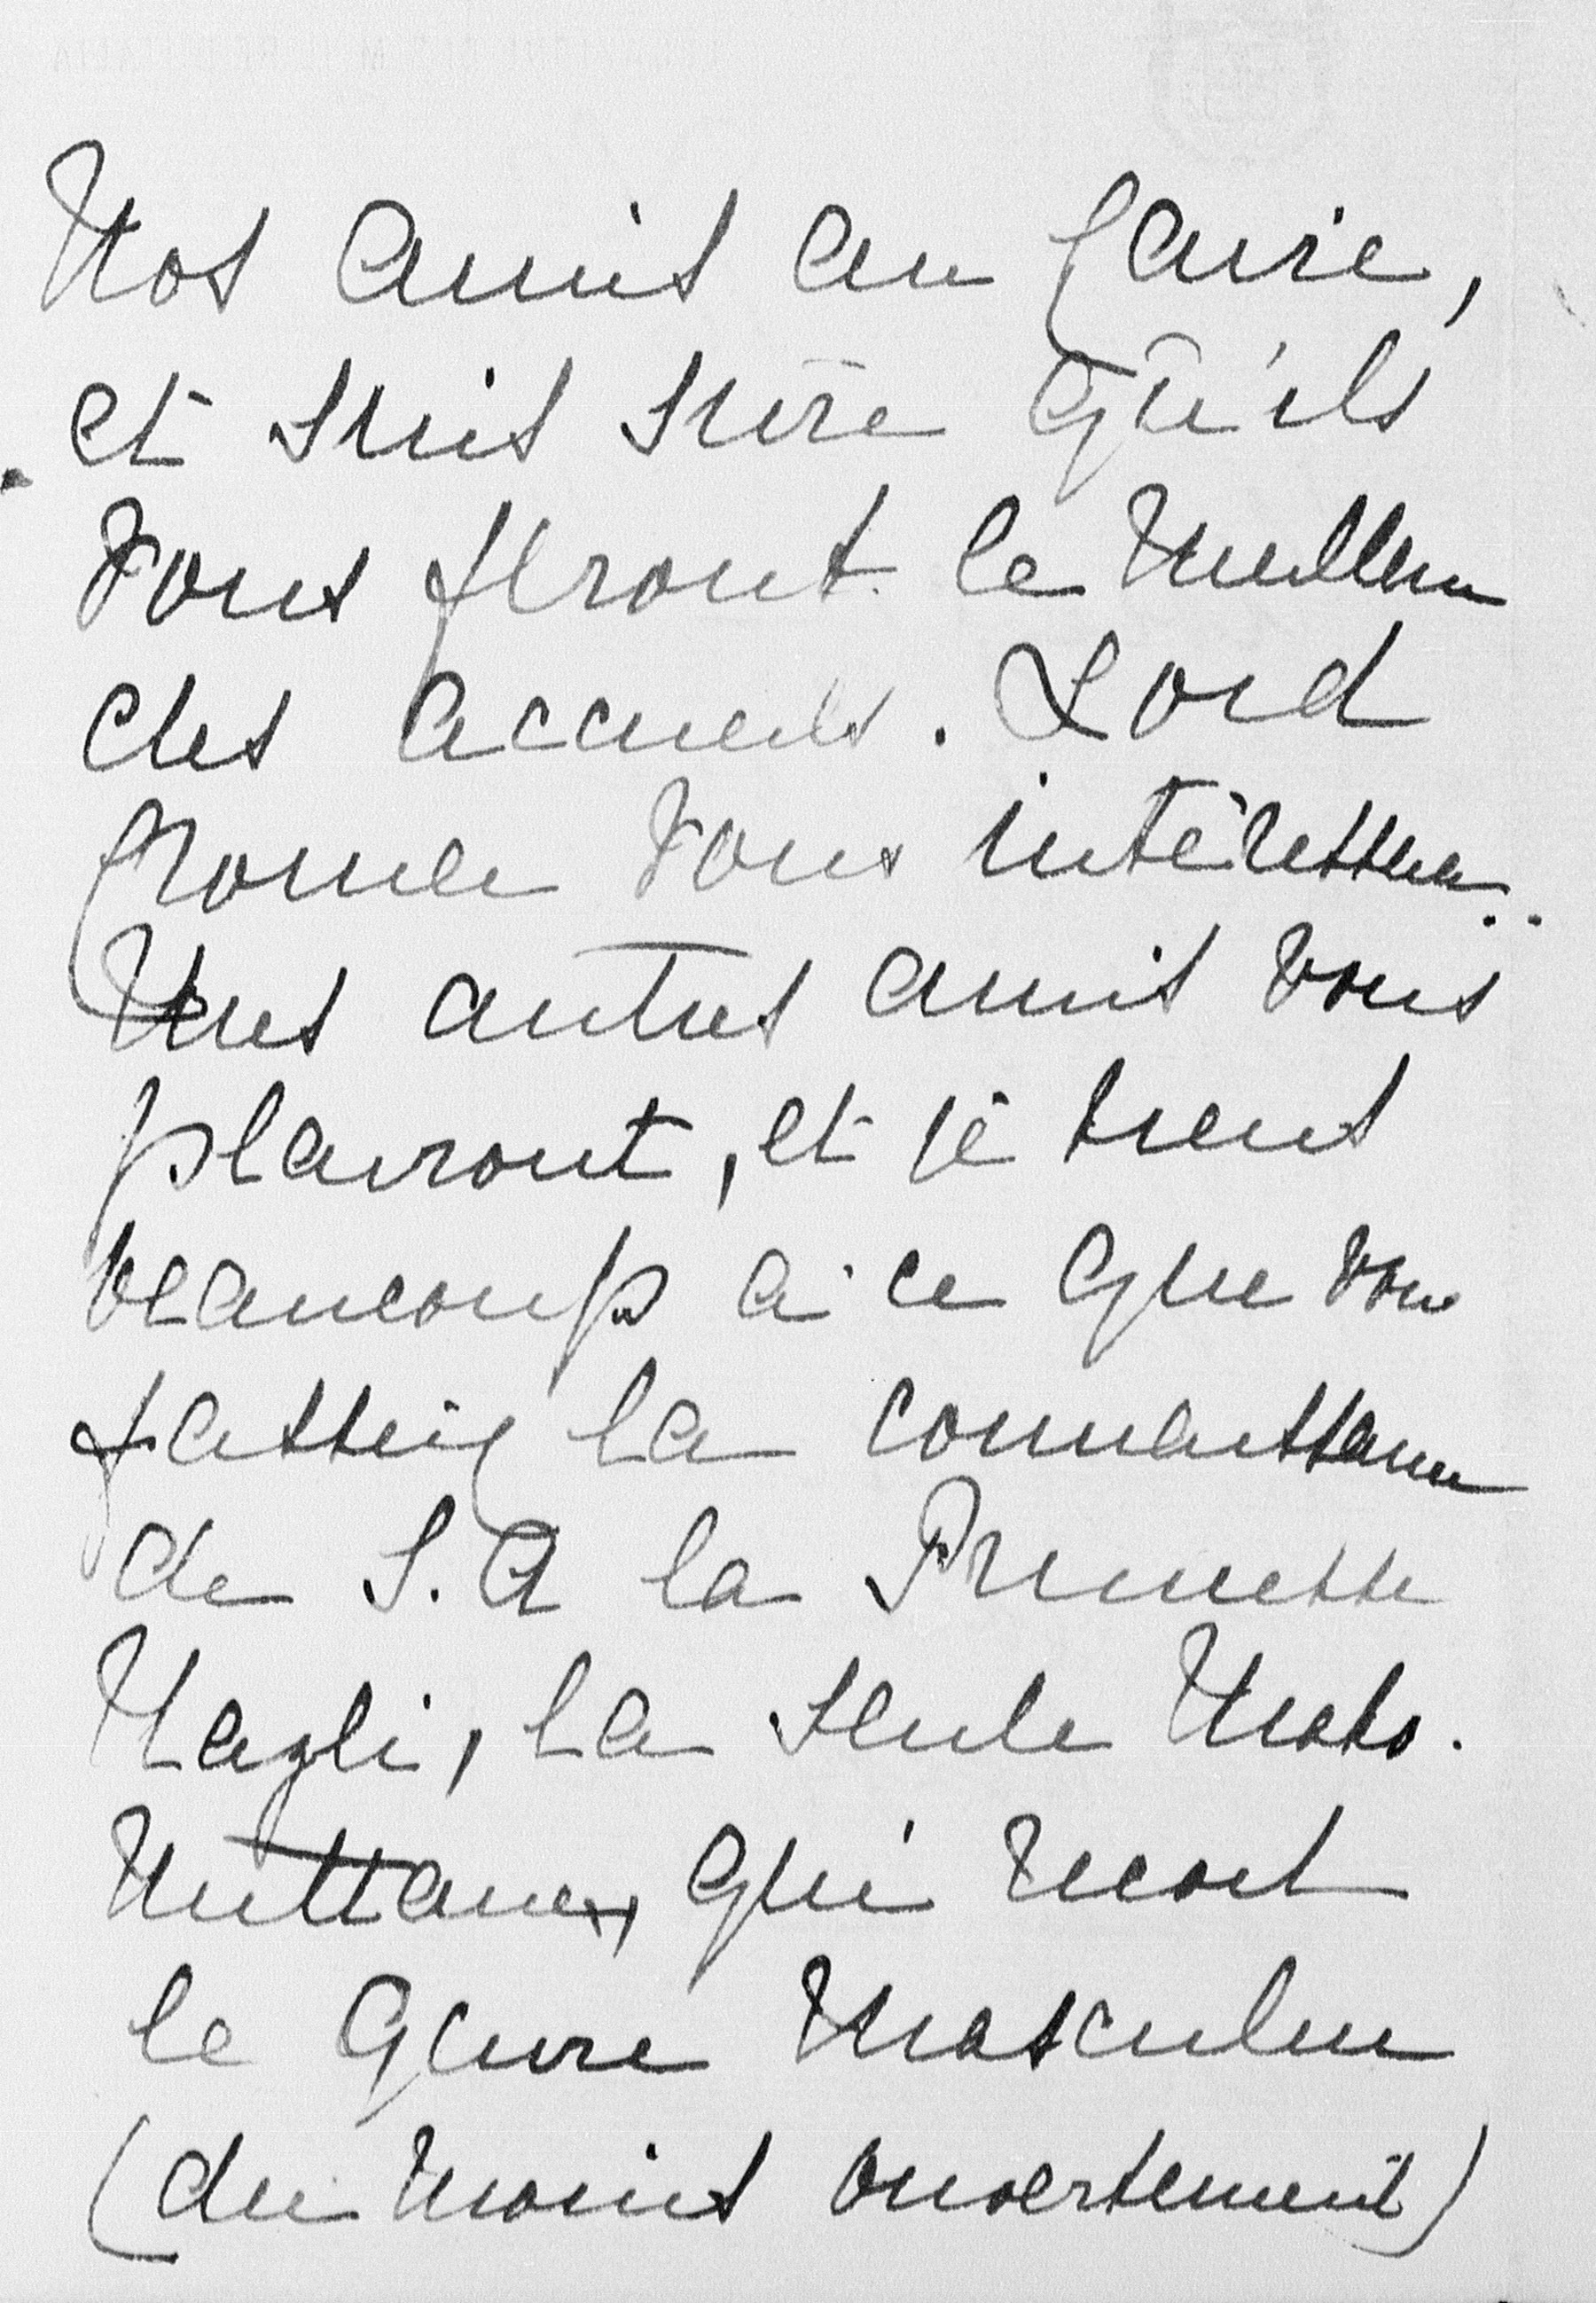 Nos amis au Caire,
et suis sûre qu'ils
vous feront le meilleur
des accueils. Lord
Cromer vous intéressera.
Mes autres amis vous
plairont, et je tiens
beaucoup à ce que vous
fassiez la connaissance
de S. A la Princesse
Nazli, la seule Maho-
mettane, qui reçoit
le genre masculin
(du moins ouvertement)